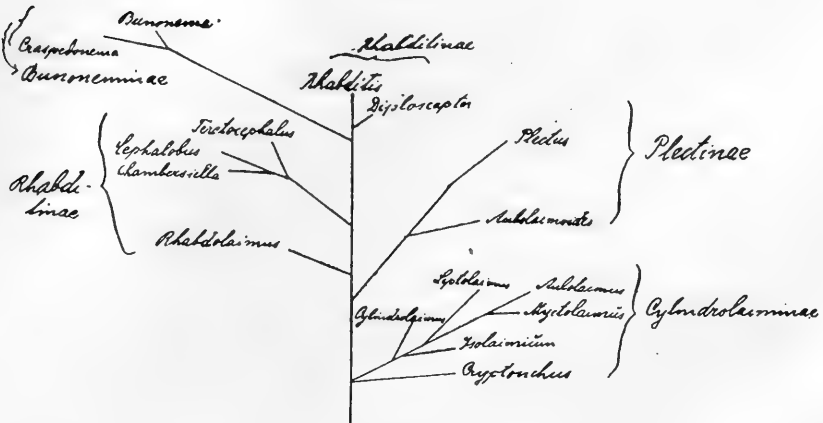 Bunonema
Craspedonema
Bunoneminae
Rhabditinae
Rhabditis
Diploscapter
Teretocephalus
Cephalobus
Chambersiella
Rhabdi-
tinae
Rhabdolaimus
Plectus
Plectinae
Aulolaimoides
Leptolaimus
Aulolaimus
Cylindrolaimus
Myctolaimus
Cylindrolaiminae
Isolaimium
Cryptonchus